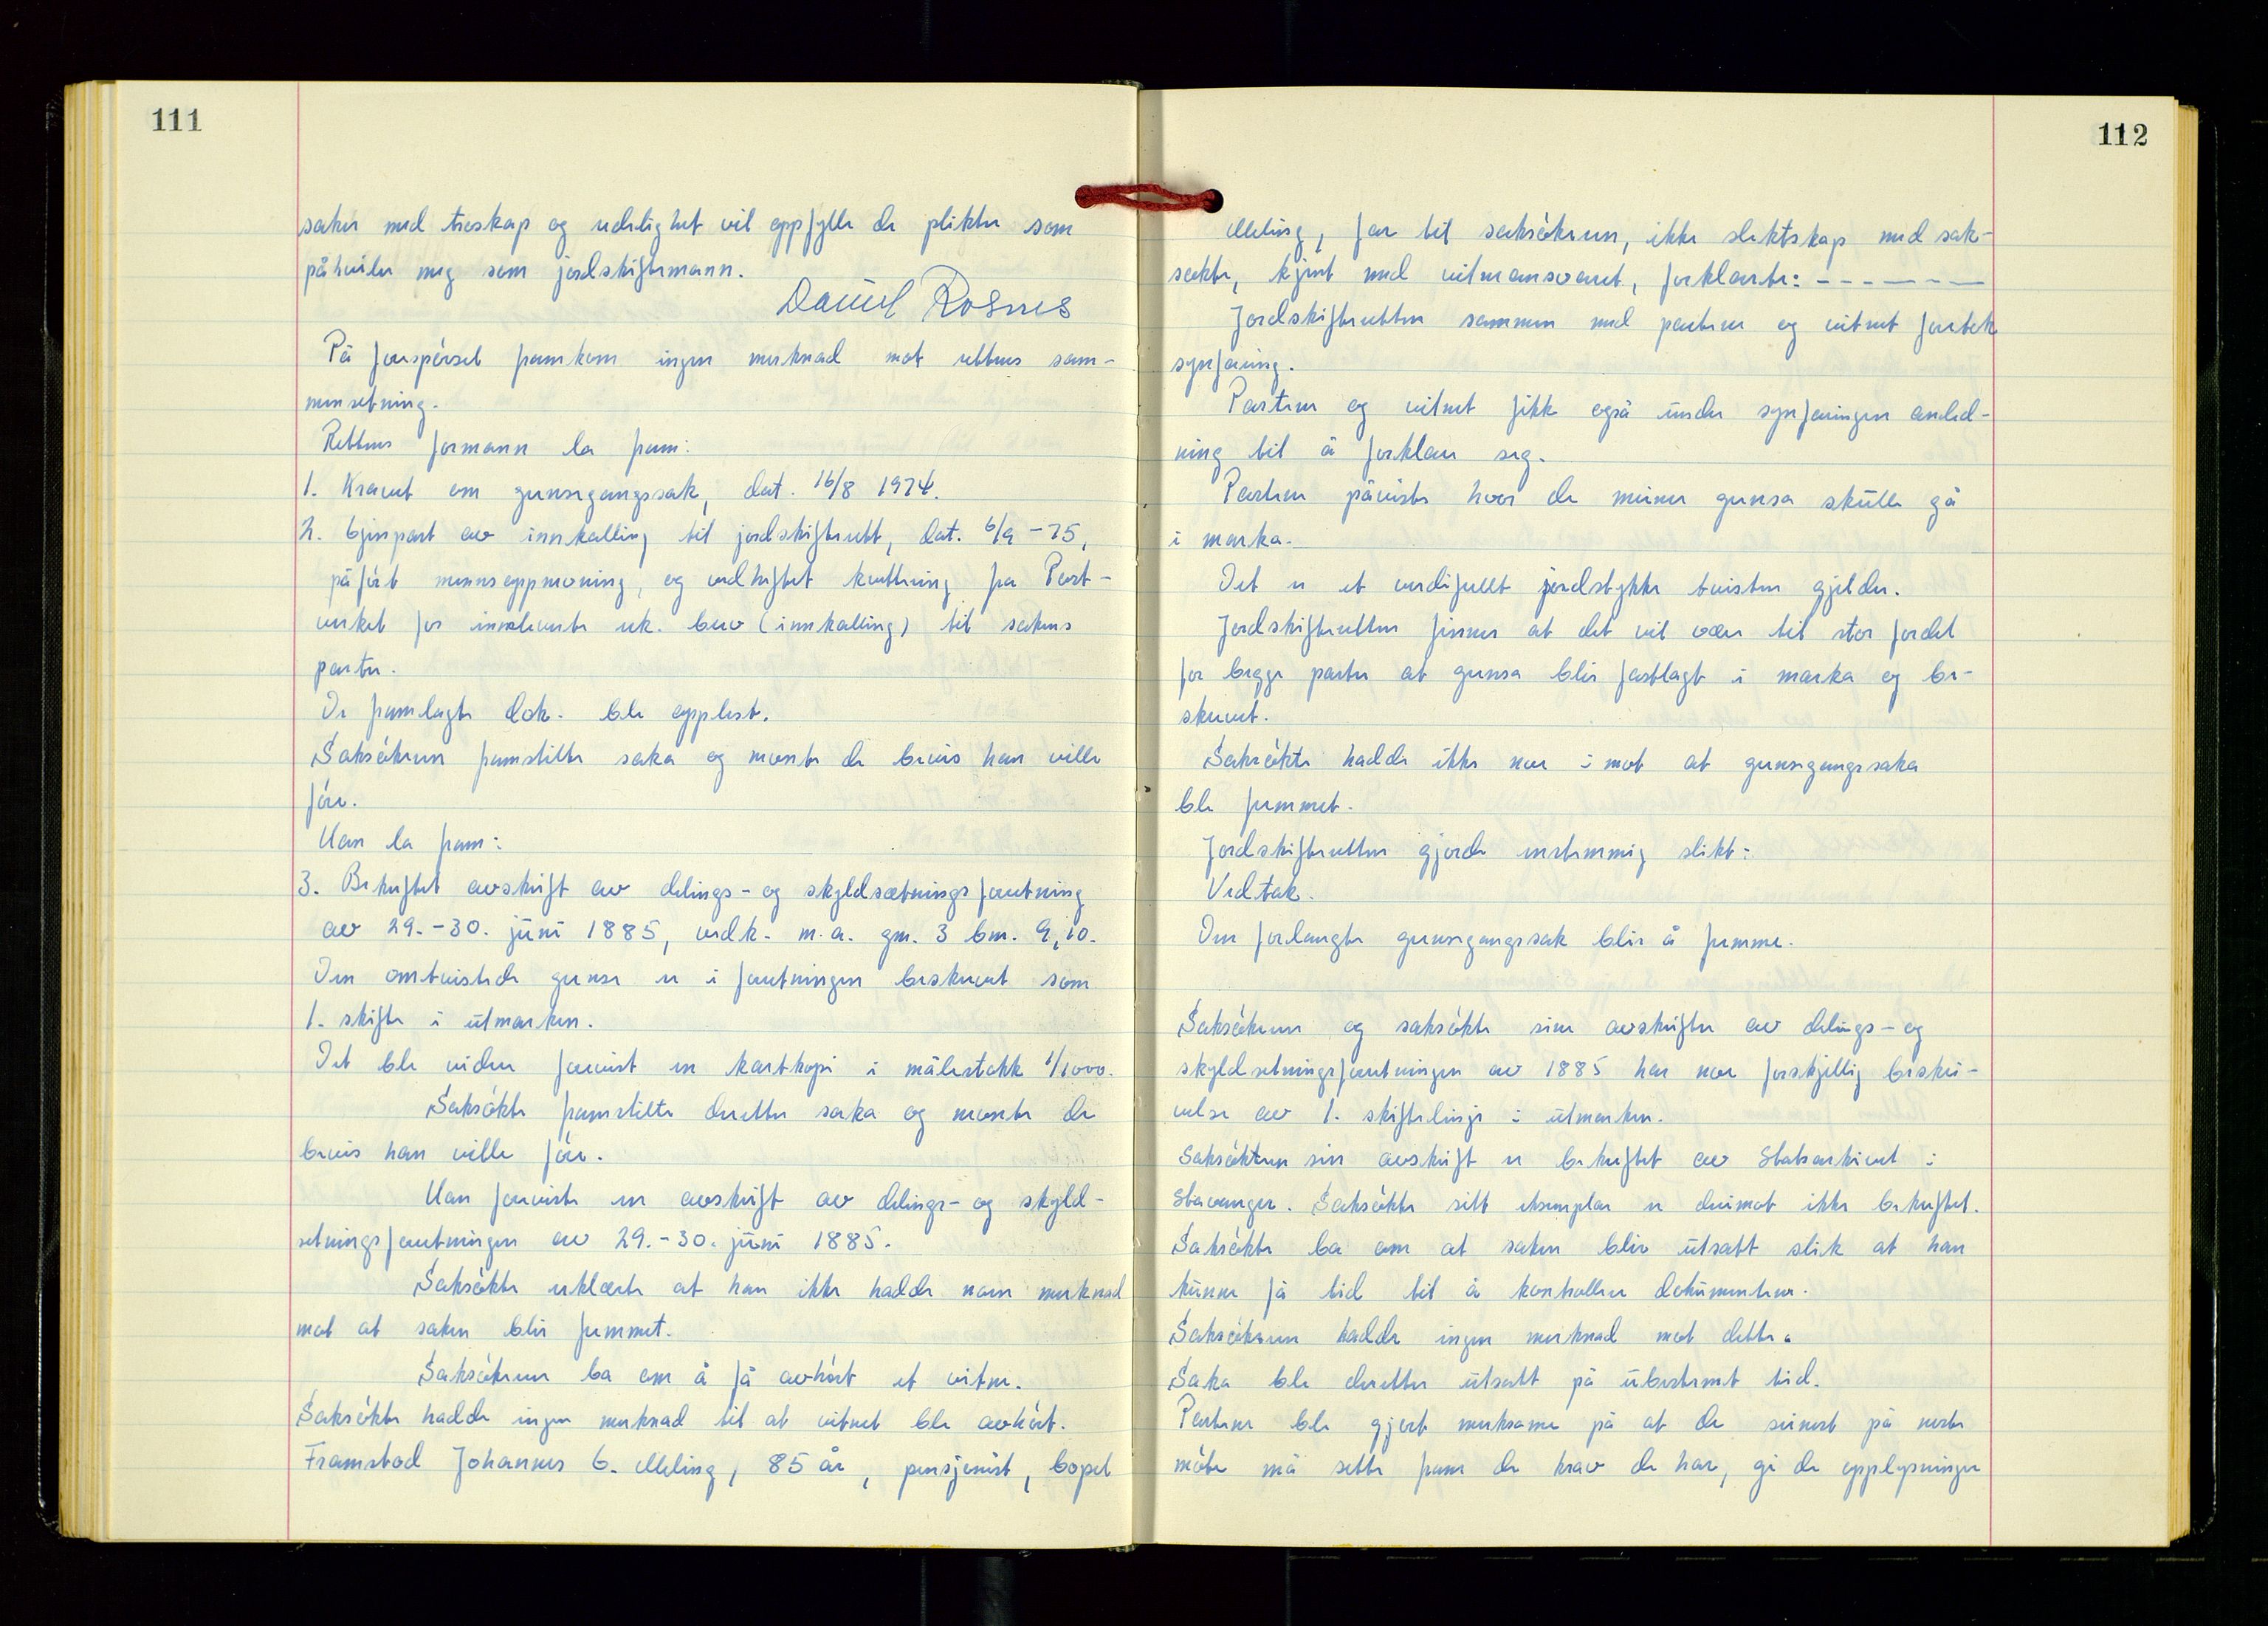 111
saker med troskap og redelighet vil oppfylle de plikter som
påhviler meg som jordskiftemann.
Daniel Rosnes
På forespørsel framkom ingen merknad mot rettens sam-
mensetning.
Rettens formann la fram:
1. Kravet om grensegangssak, dat. 16/8 1974.
2. Gjenpart av innkalling til jordskifterett, dat. 6/9 -75,
påført minneoppmoning, og vedheftet kvittering fra Post-
verket for innleverte rek. brev (innkalling) til sakens
parter.
De framlagte dok. ble opplest.
Saksøkeren framstilte saka og nevnte de bevis han ville
føre.
Han la fram:
3. Bekreftet avskrift av delings- og skyldsætningsforretning
av 29.-30. juni 1885, vedk. m.a. gnr. 3 bnr. 9,10.
Den omtvistede grense er i forretningen beskrevet som
1. skifte i utmarken.
Det ble videre forevist en kartkopi i målestokk 1/1000.
Saksøkte framstilte deretter saka og nevnte de
bevis han ville føre.
Han foreviste en avskrift av delings- og skyld-
setningsforretningen av 29.-30. juni 1885.
Saksøkte erklærte at han ikke hadde noen merknad
mot at saken blir fremmet.
Saksøkeren ba om å få avhørt et vitne.
Saksøkte hadde ingen merknad til at vitnet ble avhørt.
Framstod Johannes G. Meling, 85 år, pensjonist, bopel
112
Meling, far til saksøkeren, ikke slektskap med sak-
søkte, kjent med vitneansvaret, forklarte: - - - - - - -
Jordskifteretten sammen med partene og vitnet foretok
synfaring.
Partene og vitnet fikk også under synfaringen anled-
ning til å forklare seg.
Partene påviste hvor de mener grensa skulle gå
i marka.
Det er et verdifullt jordstykke tvisten gjelder.
Jordskifteretten finner at det vil være til stor fordel
for begge parter at grensa blir fastlagt i marka og be-
skrevet.
Saksøkte hadde ikke noe i mot at grensegangssaka
ble fremmet.
Jordskifteretten gjorde enstemmig slikt:
Vedtak.
Den forlangte grensegangssak blir å fremme.
Saksøkeren og saksøkte sine avskrifter av delings- og
skyldsetningsforretningen av 1885 har noe forskjellig beskri-
velse av 1. skiftelinje i utmarken.
Saksøkeren sin avskrift er bekreftet av Statsarkivet i
Stavanger. Saksøkte sitt eksemplar er derimot ikke bekreftet.
Saksøkte ba om at saken blir utsatt slik at han
kunne få tid til å kontrollere dokumentene.
Saksøkeren hadde ingen merknad mot dette.
Saka ble deretter utsatt på ubestemt tid.
Partene ble gjort merksame på at de seinest på neste
møte må sette fram de krav de har, gi de opplysninger